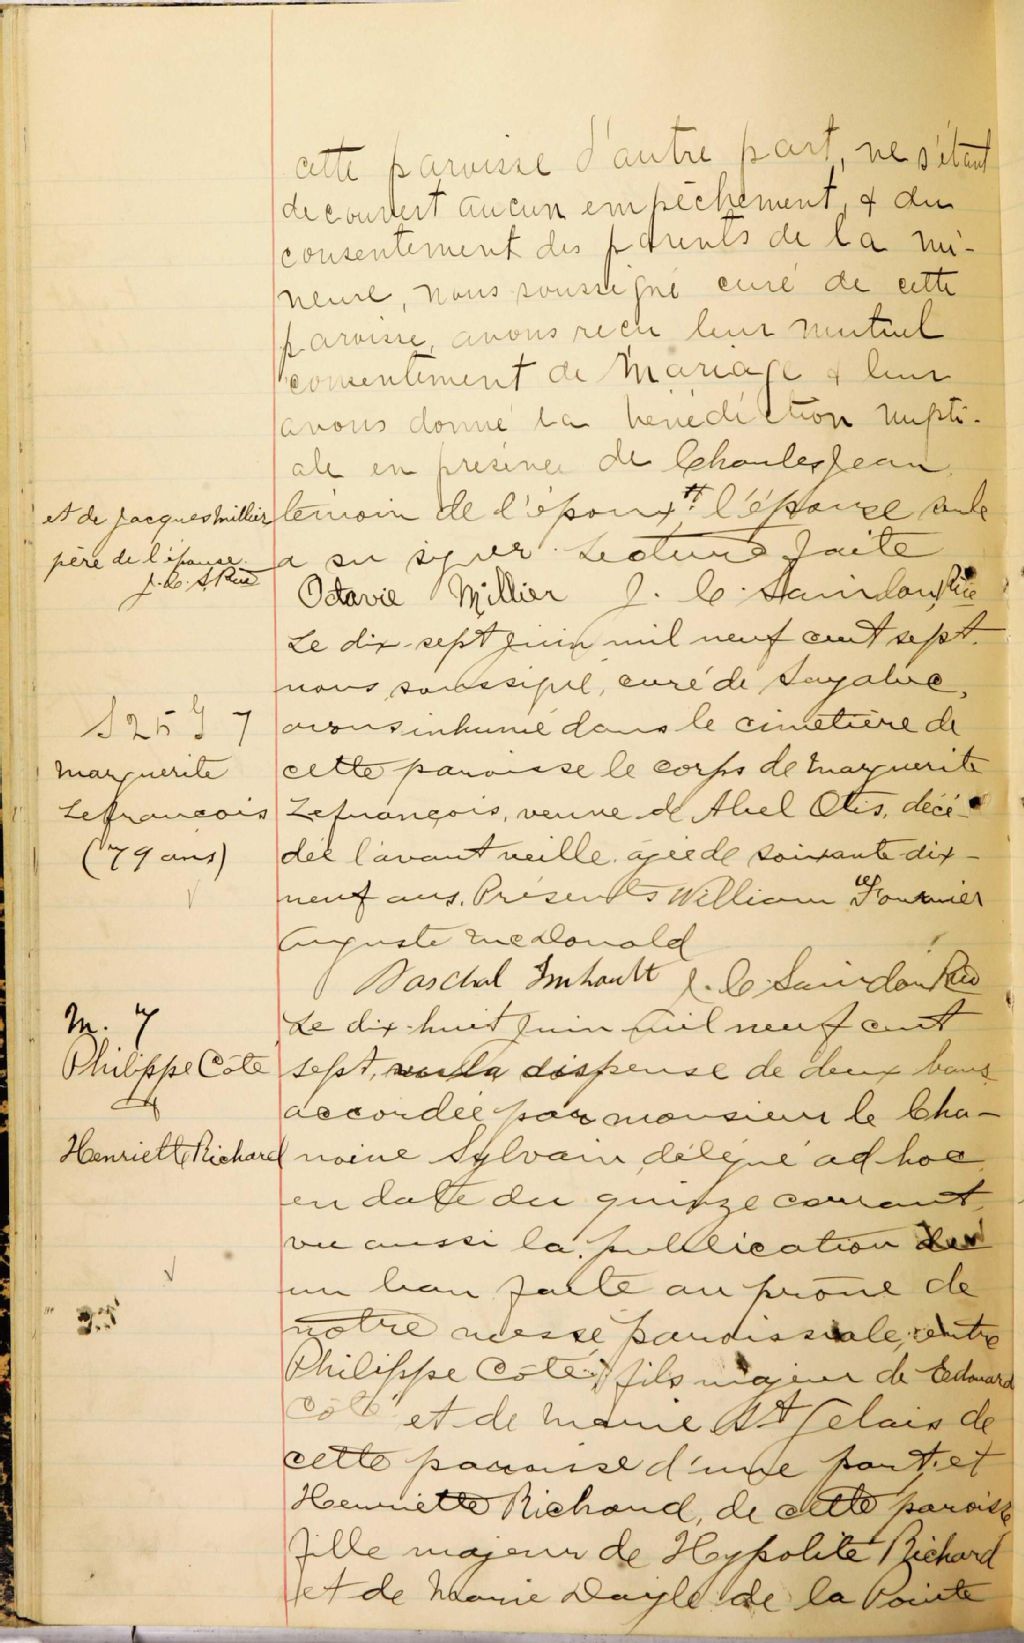 cette paroisse d'autre part, ne s'étant
decouvert aucun empêchement, & du
consentement des parents de la mi-
neure, nous soussigné curé de cette
paroisse, avons recu leur mutuel
consentement de mariage & leur
avons donné la bénédiction nupti-
ale en présence de Charles Jean
et de Jacques Millier
père de l'épouse
J. C. S. Ptre
témoin de l'époux # l'épouse seule
a su signer. Lecture faite
Octavie Millier J. C. Saindon Ptre
S 25 7
Marguerite
Lefrancois
(79 ans)
Le dix-sept juin mil neuf cent sept.
nous soussigné, curé de Sayabec,
avons inhumé dans le cimetière de
cette paroisse le corps de Marguerite
Lefrançois, veuve de Abel Otis, décé-
dée l'avant veille agée de soixante-dix-
neuf ans. Présents William Fournier
Auguste McDonald
Paschal Imhault J. C. Saindon Ptre
M. 7
Philippe Côté
&
Henriette Richard
Le dix-huit juin mil neuf cent
sept, vu la dispense de deux bans
accordée par monsieur le Cha-
noine Sylvain, délégué ad hoc
en date du quinze courant,
vu aussi la publication de
un ban faite au prône de
notre messe paroissiale, entre
Philippe Côté, fils majeur de Edouard
Côté et de Marie St Gelais de
cette paroisse d'une part, et
Henriette Richard, de cette paroisse
fille majeur de Hypolite Richard
et de Marie Dayle de la Pointe